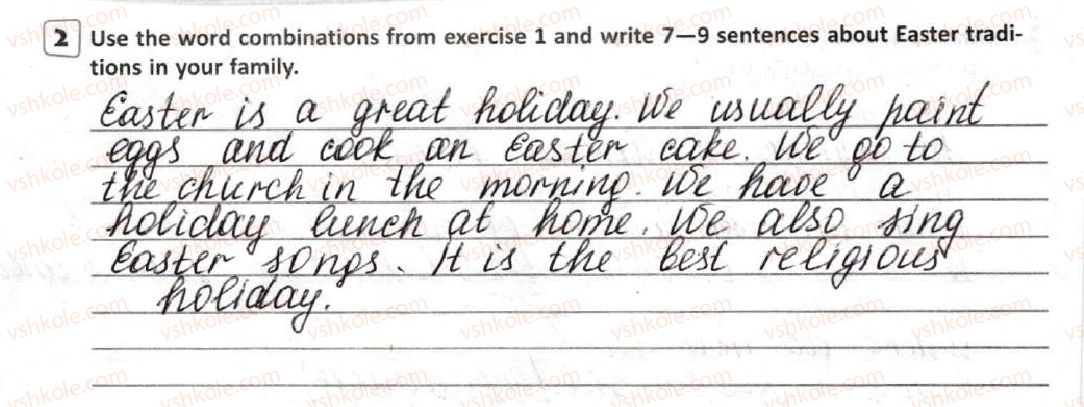 2 Use the word combinations from exercise 1 and write 7—9 sentences about Easter tradi-
tions in your family.
Easter is a great holiday. We usually paint
eggs and cook an Easter cake. We go to
the church in the morning. We have a
holiday lunch at home. We also sing
Easter songs. It is the best religious
holiday.
vshkole.com